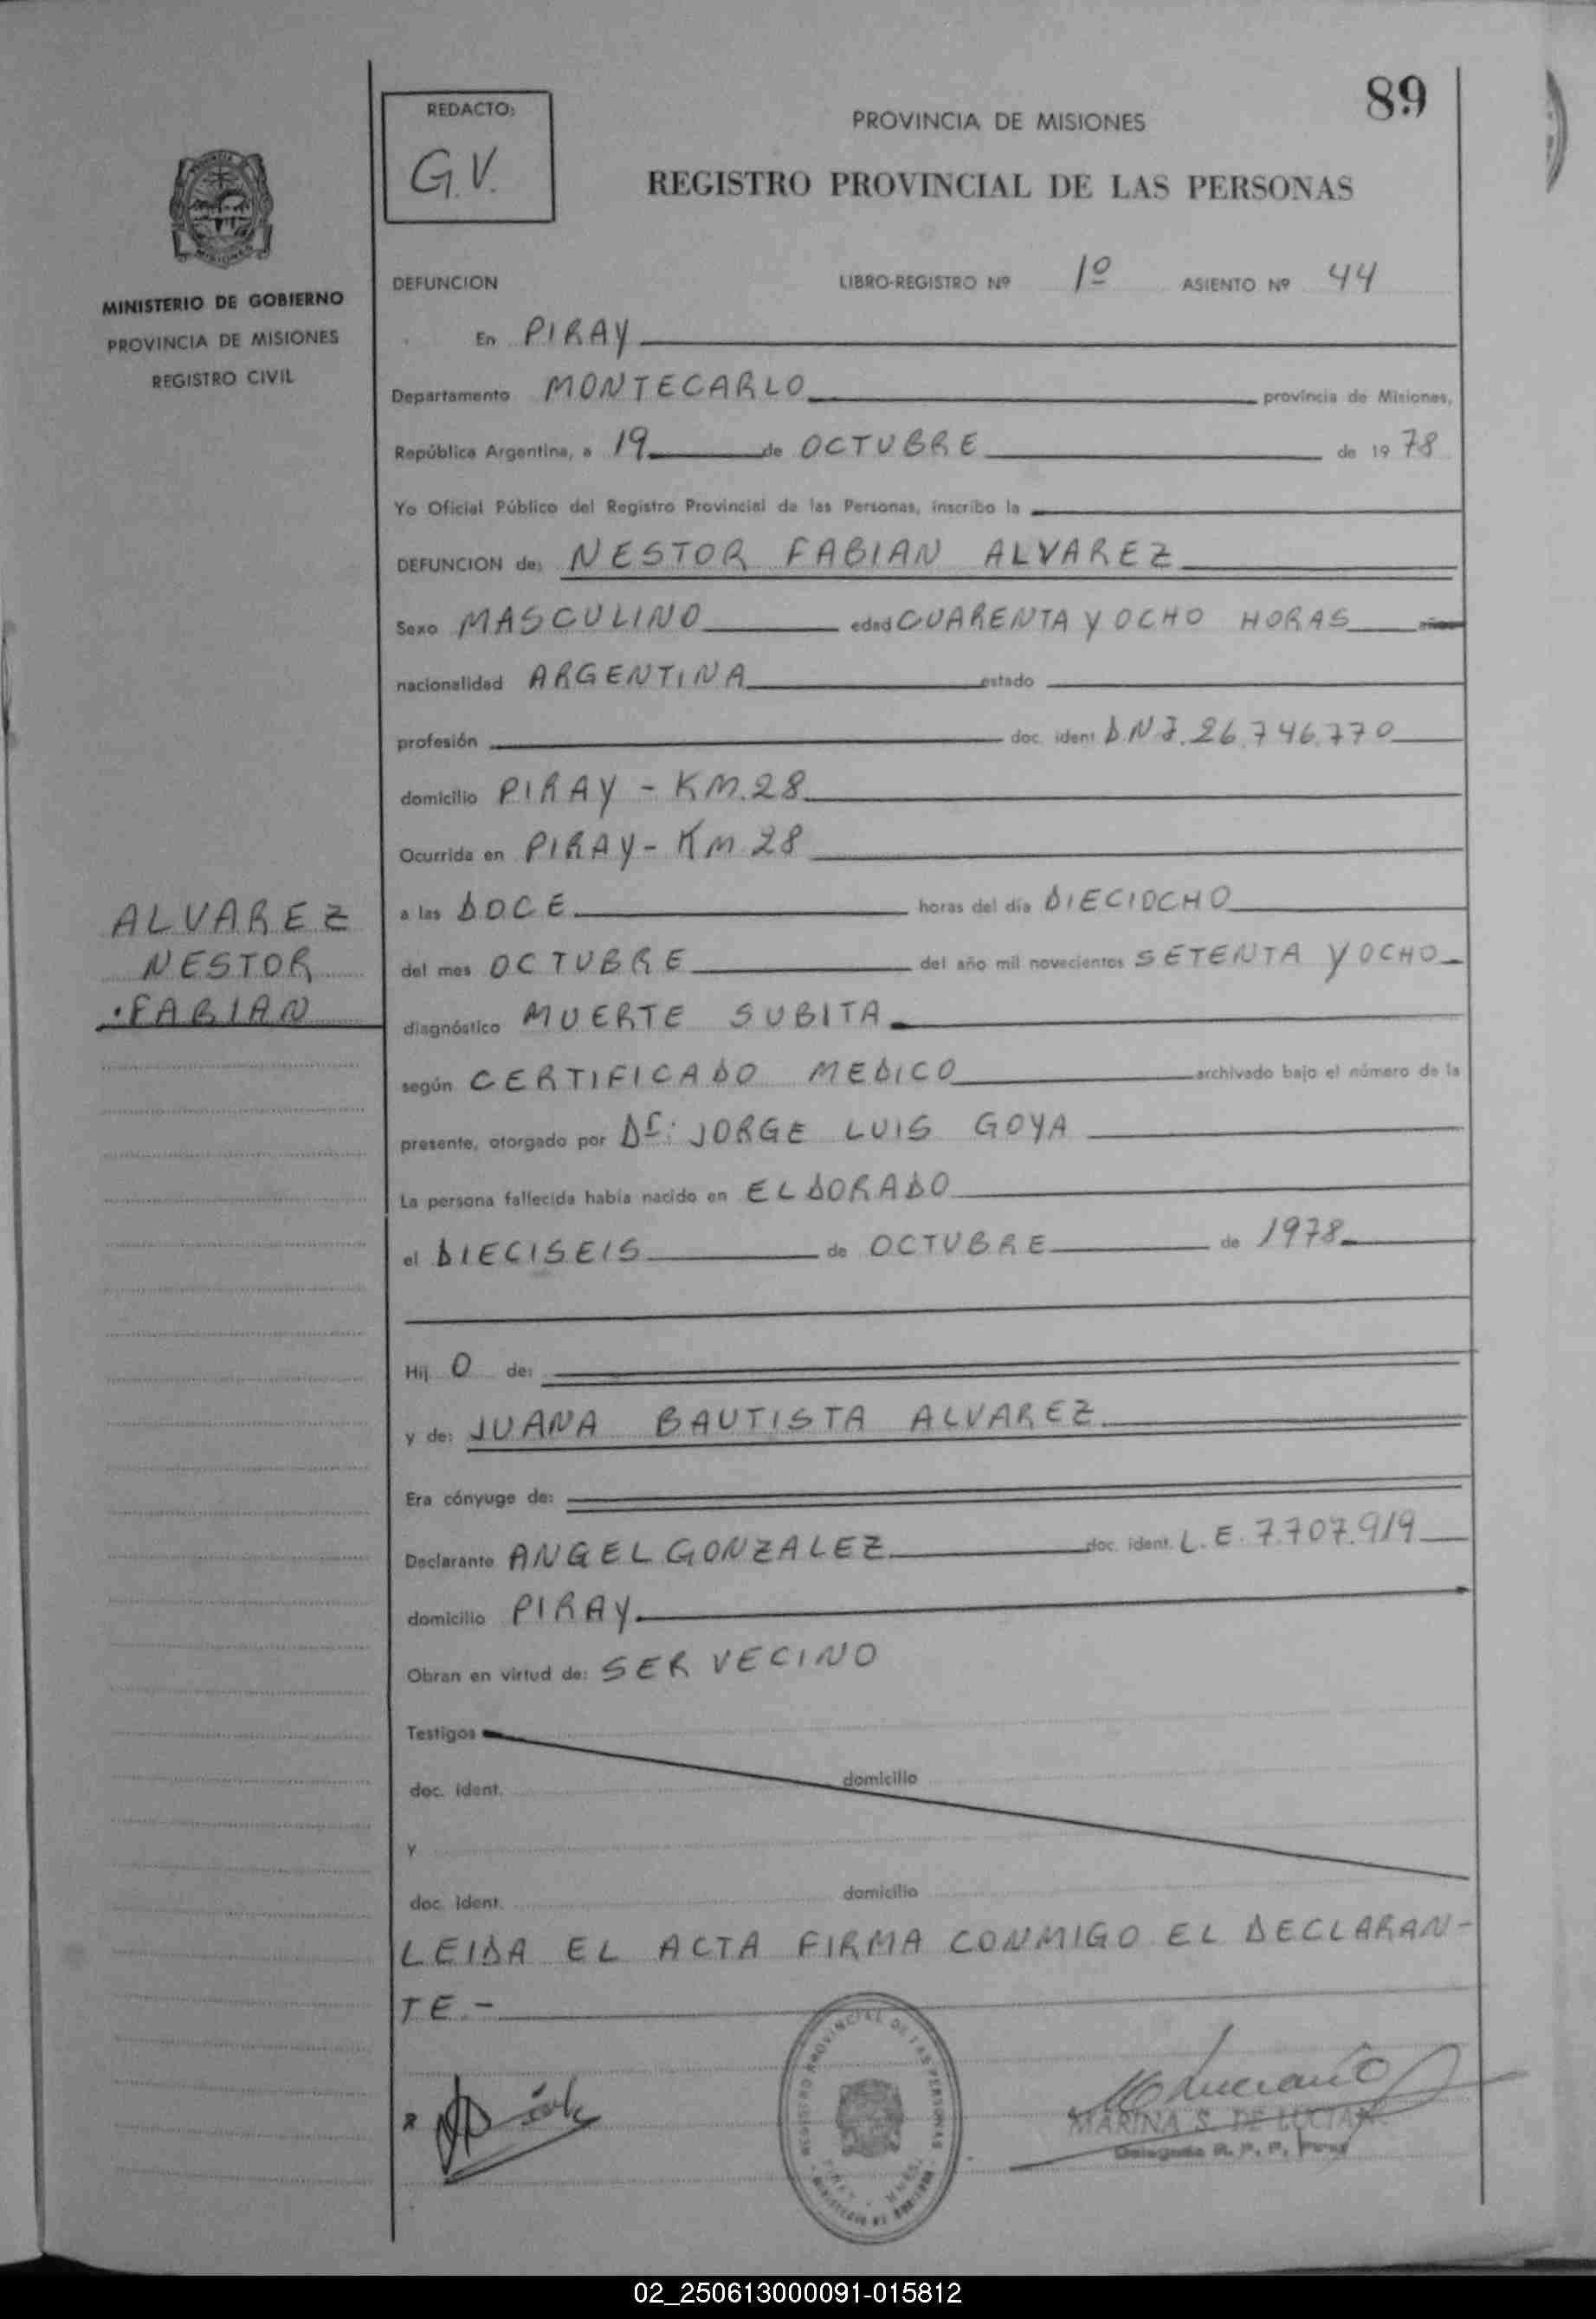 89
REDACTO:
G.V.
PROVINCIA DE MISIONES
REGISTRO PROVINCIAL DE LAS PERSONAS
MINISTERIO DE GOBIERNO
PROVINCIA DE MISIONES
REGISTRO CIVIL
DEFUNCION LIBRO-REGISTRO Nº 1º ASIENTO Nº 44
En PIRAY
Departamento MONTECARLO provincia de Misiones,
República Argentina, a 19 de OCTUBRE de 19 78
Yo Oficial Público del Registro Provincial de las Personas, inscribo la
DEFUNCION de: NESTOR FABIAN ALVAREZ
Sexo MASCULINO edad CUARENTA Y OCHO HORAS años
nacionalidad ARGENTINA estado
profesión doc. ident D.N.I. 26.746.770
domicilio PIRAY - KM.28
Ocurrida en PIRAY - KM 28
ALVAREZ
NESTOR
FABIAN
a las DOCE horas del día DIECIOCHO
del mes OCTUBRE del año mil novecientos SETENTA Y OCHO
diagnóstico MUERTE SUBITA
según CERTIFICADO MEDICO archivado bajo el número de la
presente, otorgado por Dr: JORGE LUIS GOYA
La persona fallecida había nacido en ELDORADO
el DIECISEIS de OCTUBRE de 1978
Hij O de:
y de: JUANA BAUTISTA ALVAREZ
Era cónyuge de:
Declarante ANGEL GONZALEZ doc. ident. L.E. 7.707.919
domicilio PIRAY
Obran en virtud de: SER VECINO
Testigos
doc. ident. domicilio
y
doc. ident. domicilio
LEIDA EL ACTA FIRMA CONMIGO EL DECLARAN-
TE.-
REGISTRO PROVINCIAL DE LAS PERSONAS
MARINA S. DE LUCIANO
Delegada R. P. P. Piray
02_250613000091-015812